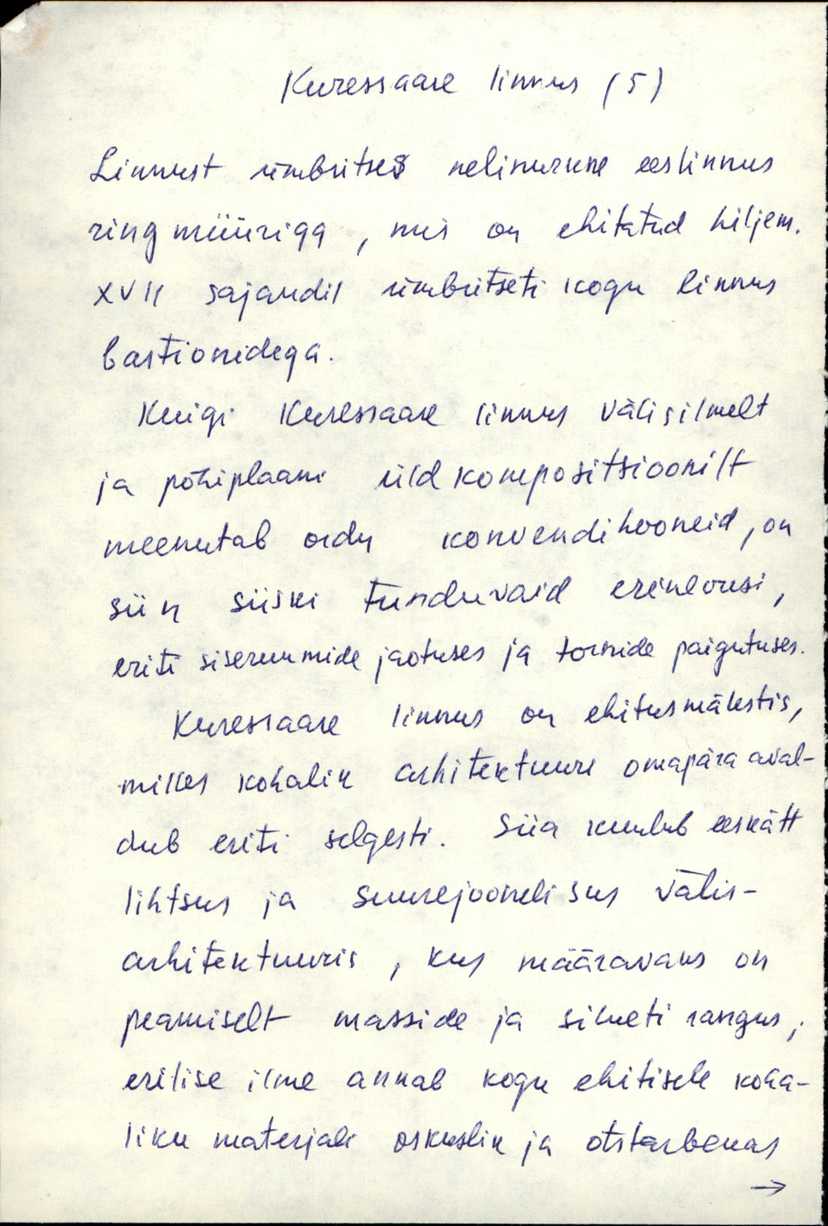 Kuressaare linnus (5)
Linnust ümbritses nelinurkne eeslinnus
ringmüüriga, mis on ehitatud hiljem.
XVII sajandil ümbritseti kogu linnus
bastionidega.
Kuigi Kuressaare linnus välisilmelt
ja põhiplaani üldkompositsioonilt
meenutab ordu konvendihooneid, on
siin siiski tunduvaid erinevusi,
eriti siseruumide jaotuses ja tornide paigutuses.
Kuressaare linnus on ehitusmälestis,
milles kohalik arhitektuuri omapära aval-
dub eriti selgesti. Siia kuulub eeskätt
lihtsus ja suurejoonelisus välis-
arhitektuuris, kus määravaks on
peamiselt masside ja silueti rangus,
erilise ilme annab kogu ehitisele koha-
liku materjali oskuslik ja otstarbekas
→